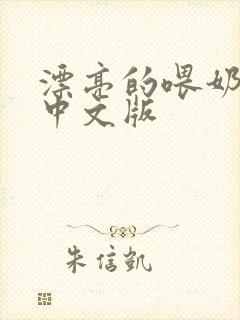 漂亮的喂奶
中文版
朱信凯